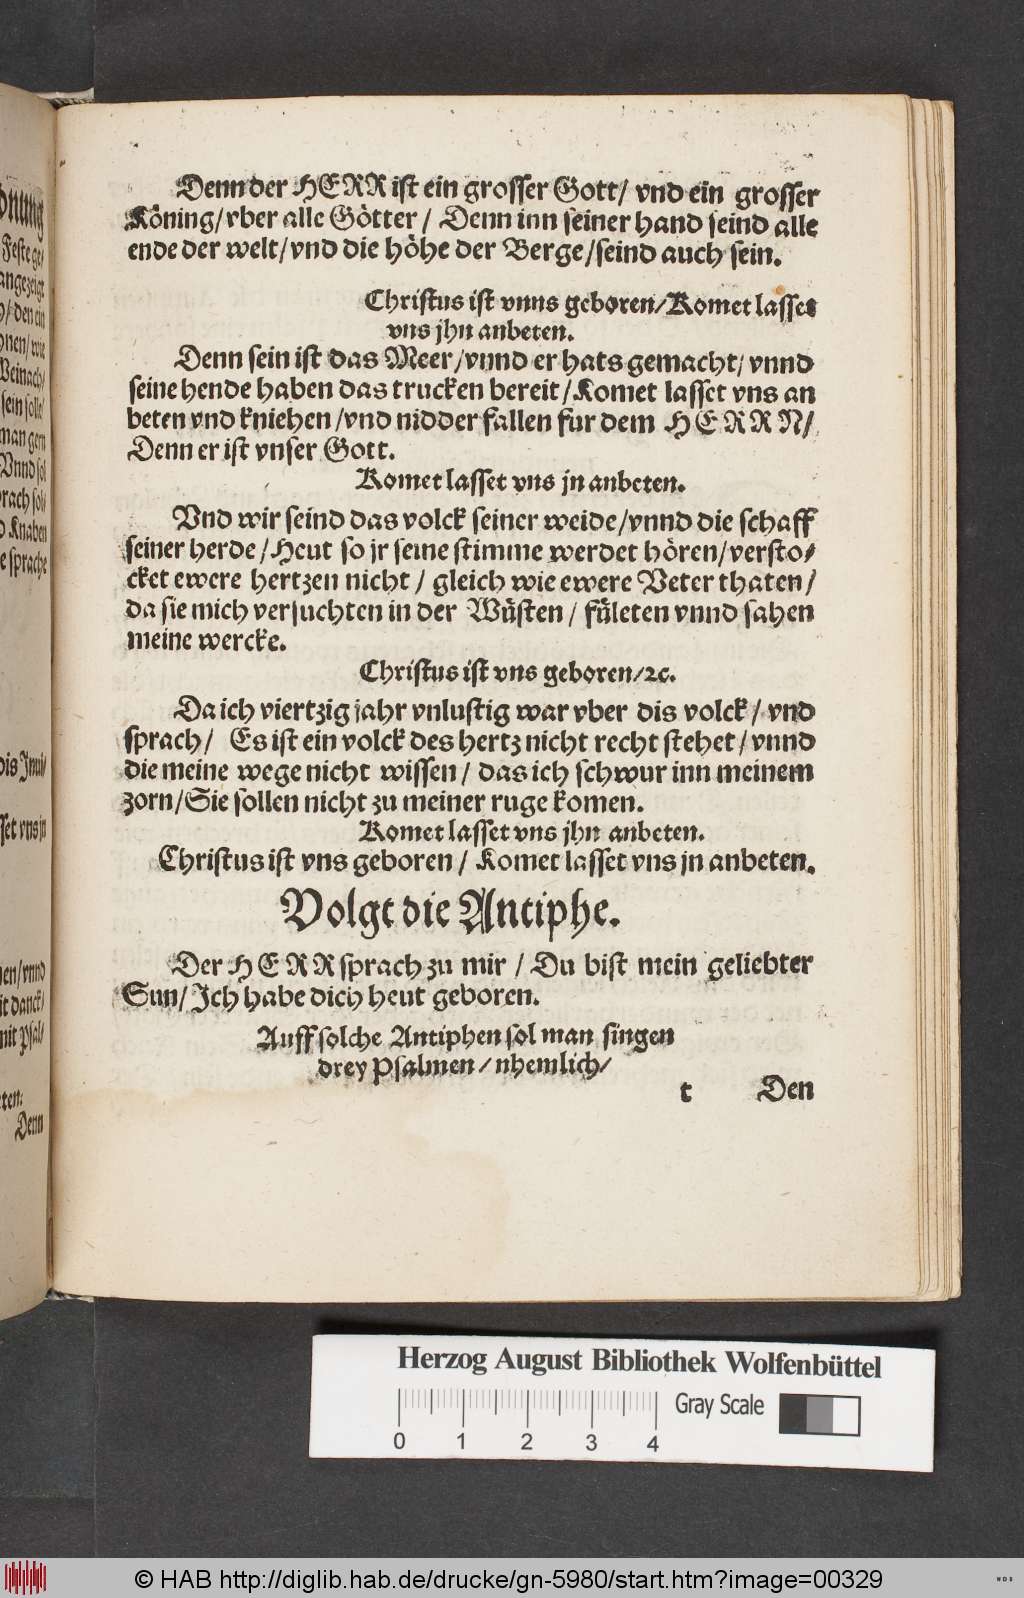 Denn der HERR ist ein grosser Gott/ vnd ein grosser
Köning/vber alle Götter / Denn inn seiner hand seind alle
ende der welt/vnd die höhe der Berge/seind auch sein.
Christus ist vnns geboren/Komet lasset
vns jhn anbeten.
Denn sein ist das Meer/vnnd er hats gemacht/ vnnd
seine hende haben das trucken bereit/Komet lasset vns an
beten vnd kniehen/vnd nidder fallen fur dem HERRN/
Denn er ist vnser Gott.
Komet lasset vns jn anbeten.
Vnd wir seind das volck seiner weide/vnnd die schaff
seiner herde/Heut so jr seine stimme werdet hören/versto-
cket ewere hertzen nicht / gleich wie ewere Veter thaten/
da sie mich versuchten in der Wüsten / fületen vnnd sahen
meine wercke.
Christus ist vns geboren/zc.
Da ich viertzig jahr vnlustig war vber dis volck / vnd
sprach/ Es ist ein volck des hertz nicht recht stehet/vnnd
die meine wege nicht wissen/ das ich schwur inn meinem
zorn/Sie sollen nicht zu meiner ruge komen.
Komet lasset vns jhn anbeten.
Christus ist vns geboren / Komet lasset vns jn anbeten.
Volgt die Antiphe.
Der HERR sprach zu mir / Du bist mein geliebter
Sun/Ich habe dich heut geboren.
Auff solche Antiphen sol man singen
drey Psalmen/nhemlich/
t Den
Feste ge/
angezeigt
den ein
sein solle/
man gern
Vnnd sol
Knaben
sprache
Denn
Herzog August Bibliothek Wolfenbüttel
Gray Scale
0 1 2 3 4
© HAB http://diglib.hab.de/drucke/gn-5980/start.htm?image=00329